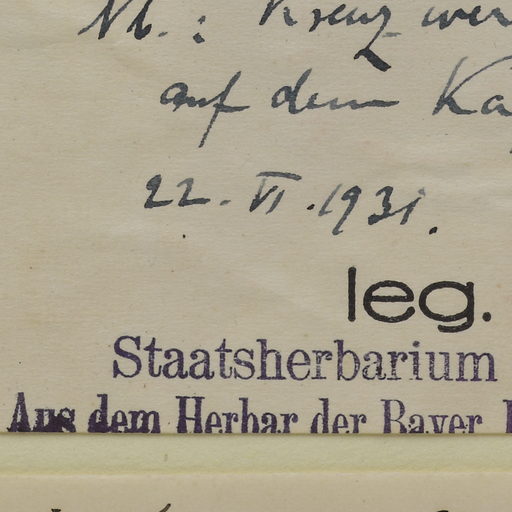 Nb.: Kreuz
auf dem
22. VI. 1931.
leg.
Staatsherbarium
Aus dem Herbar der Bayer.